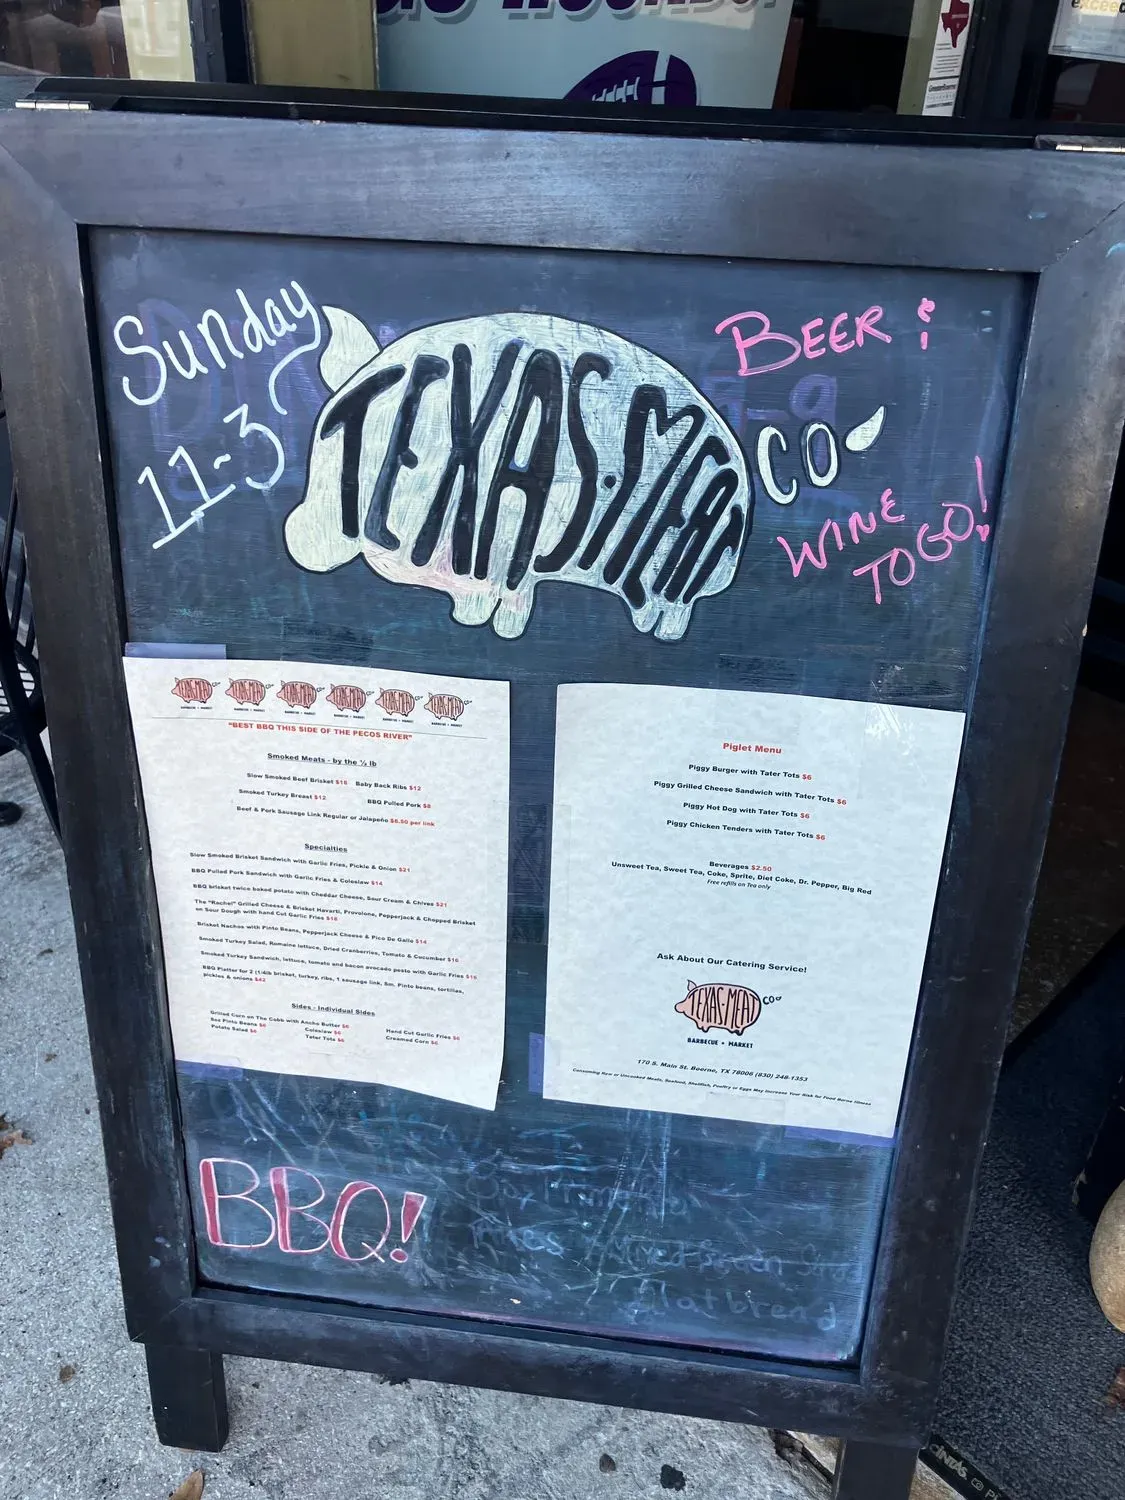 Sunday
11-3
TEXAS·MEAT CO
BEER &
WINE
TO GO!
TEXAS·MEAT CO TEXAS·MEAT CO TEXAS·MEAT CO TEXAS·MEAT CO TEXAS·MEAT CO TEXAS·MEAT CO
BARBECUE • MARKET BARBECUE • MARKET BARBECUE • MARKET BARBECUE • MARKET BARBECUE • MARKET BARBECUE • MARKET
"BEST BBQ THIS SIDE OF THE PECOS RIVER"
Smoked Meats - by the ½ lb
Slow Smoked Beef Brisket $18 Baby Back Ribs $12
Smoked Turkey Breast $12 BBQ Pulled Pork $8
Beef & Pork Sausage Link Regular or Jalapeño $6.50 per link
Specialties
Slow Smoked Brisket Sandwich with Garlic Fries, Pickle & Onion $21
BBQ Pulled Pork Sandwich with Garlic Fries & Coleslaw $14
BBQ brisket twice baked potato with Cheddar Cheese, Sour Cream & Chives $21
The "Rachel" Grilled Cheese & Brisket Havarti, Provolone, Pepperjack & Chopped Brisket
on Sour Dough with hand Cut Garlic Fries $18
Brisket Nachos with Pinto Beans, Pepperjack Cheese & Pico De Gallo $14
Smoked Turkey Salad, Romaine lettuce, Dried Cranberries, Tomato & Cucumber $16
Smoked Turkey Sandwich, lettuce, tomato and bacon avocado pesto with Garlic Fries $16
BBQ Platter for 2 (1/4lb brisket, turkey, ribs, 1 sausage link, Sm. Pinto beans, tortillas,
pickles & onions $42
Sides - Individual Sides
Grilled Corn on The Cobb with Ancho Butter $6
Soz Pinto Beans $6 Coleslaw $6 Hand Cut Garlic Fries $6
Potato Salad $6 Tater Tots $6 Creamed Corn $6
Piglet Menu
Piggy Burger with Tater Tots $6
Piggy Grilled Cheese Sandwich with Tater Tots $6
Piggy Hot Dog with Tater Tots $6
Piggy Chicken Tenders with Tater Tots $6
Beverages $2.50
Unsweet Tea, Sweet Tea, Coke, Sprite, Diet Coke, Dr. Pepper, Big Red
Free refills on Tea only
Ask About Our Catering Service!
TEXAS·MEAT CO
BARBECUE • MARKET
170 S. Main St. Boerne, TX 78006 (830) 248-1353
Consuming Raw or Uncooked Meats, Seafood, Shellfish, Poultry or Eggs May Increase Your Risk for Food Borne Illness
BBQ!
Flatbread
CINTAS